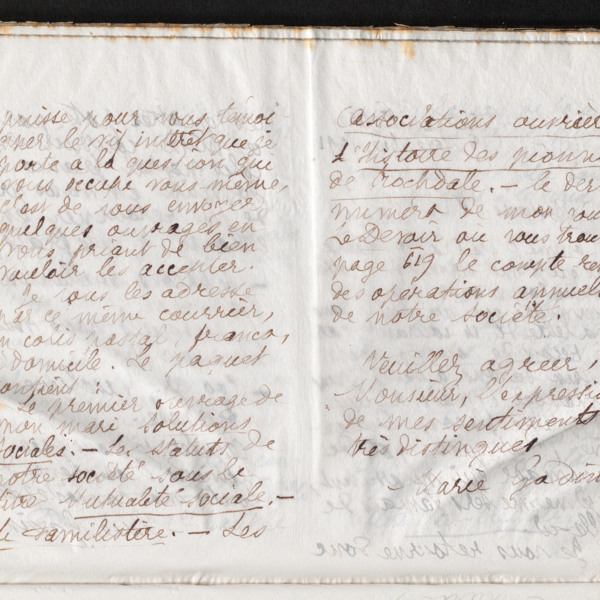 puisse pour vous témoi-
gner le vif intérêt que je
porte à la question qui
vous occupe vous même,
c'est de vous envoyer
quelques ouvrages en
vous priant de bien
vouloir les accepter.
Je vous les adresse
par ce même courrier,
en colis postal, franco,
domicile. Le paquet
contient :
Le premier ouvrage de
mon mari Solutions
sociales. - Les statuts de
notre société sous le
titre Mutualité sociale. -
Le Familistère. - Les
associations ouvrièr
L'Histoire des pionn
de Rochdale. - le der
numéro de mon
Le Devoir où vous trou
page 619 le compte ren
des opérations annuel
de notre société.
Veuillez agréer,
Monsieur, l'expressi
de mes sentiments
très distingués
Marie Godin